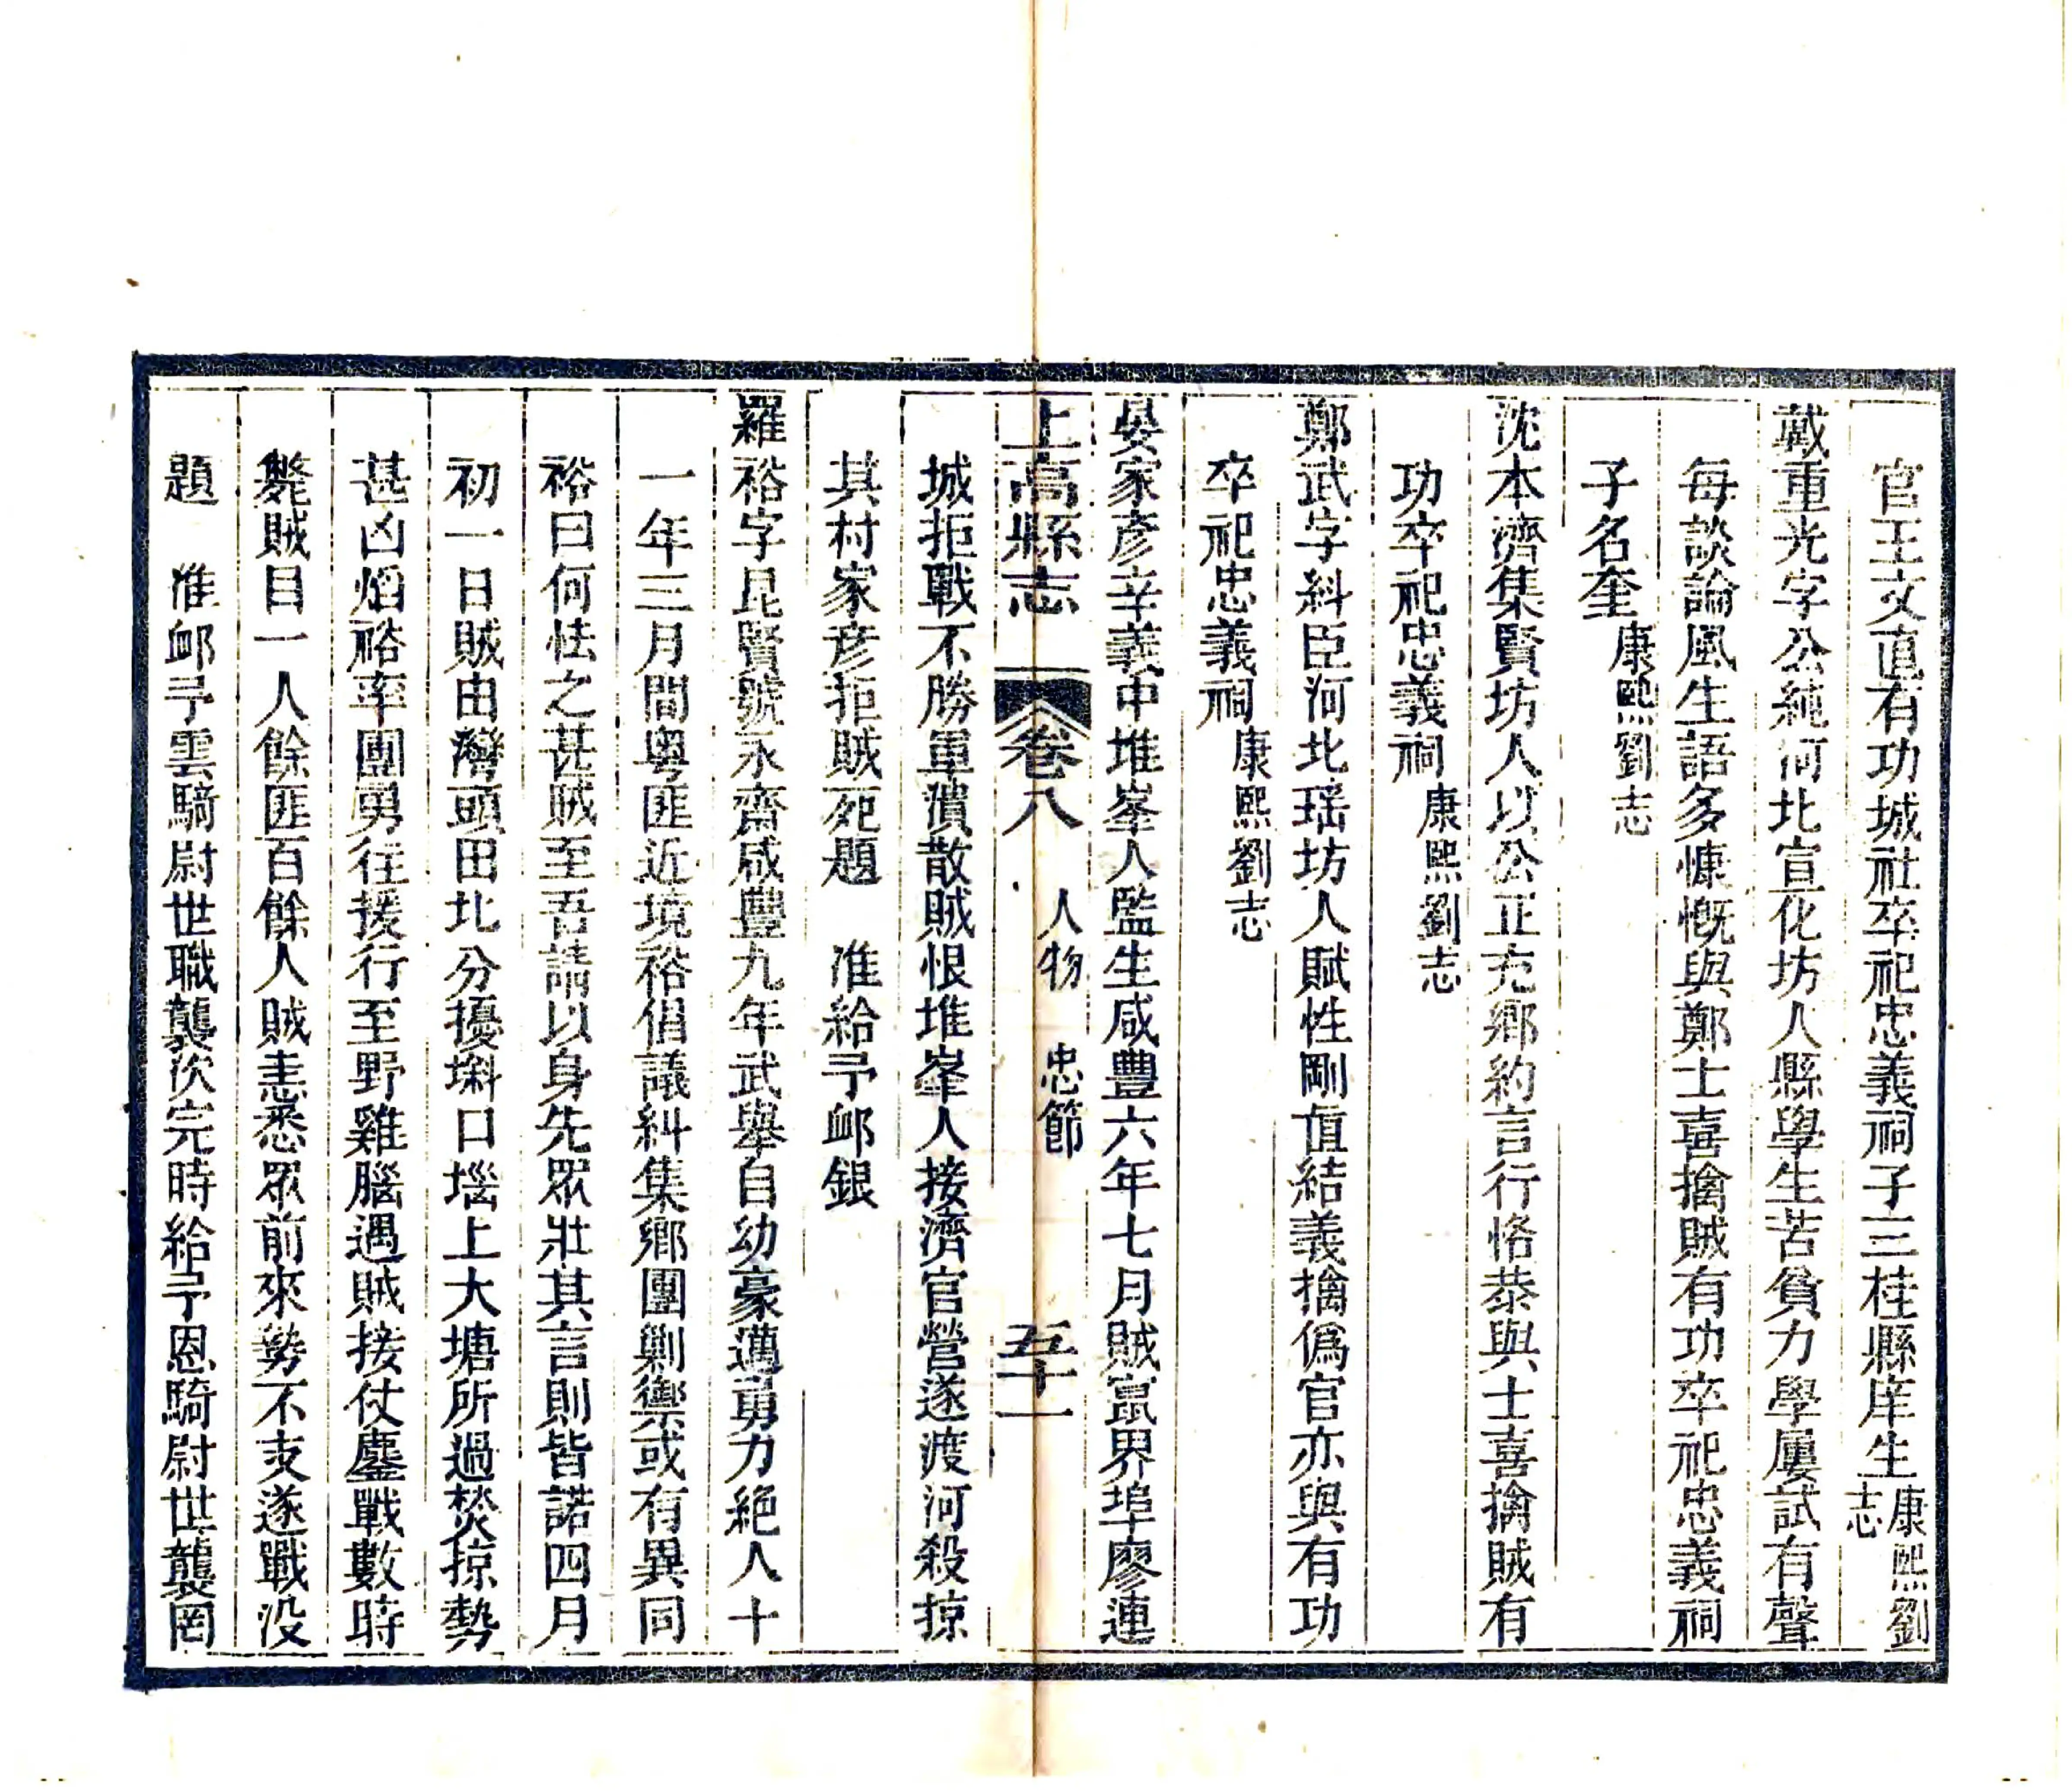 官王文直有功城社卒祀忠義祠子三桂縣庠生康熙劉志
戴重光字公純河北宣化坊人縣學生苦貧力學屢試有聲
每談論風生語多慷慨與鄭士喜擒賊有功卒祀忠義祠
子名奎康熙劉志
沈本濟集賢坊人以公正充鄉約言行恪恭與士喜擒賊有
功卒祀忠義祠康熙劉志
鄭武字糾臣河北瑶坊人賦性剛直結義擒僞官亦與有功
卒祀忠義祠康熙劉志
晏家彥辛義中堆峯人監生咸豐六年七月賊竄界埠廖連
上高縣志 卷八 人物 忠節 五十一
城拒戰不勝軍潰散賊恨堆峯人接濟官營遂渡河殺掠
其村家彥拒賊死題 准給予卹銀
羅裕字昆賢號永齋咸豐九年武舉自幼豪邁勇力絕人十
一年三月間粵匪近境裕倡議糾集鄉團剿禦或有異同
裕曰何怯之甚賊至吾請以身先眾壯其言則皆諾四月
初一日賊由灣頭田北分擾塅口堖上大塘所過焚掠勢
甚凶熖裕率團勇往援行至野雞腦遇賊接仗鏖戰數時
斃賊目一人餘匪百餘人賊恚悉眾前來勢不支遂戰没
題 准卹予雲騎尉世職襲次完時給予恩騎尉世襲罔